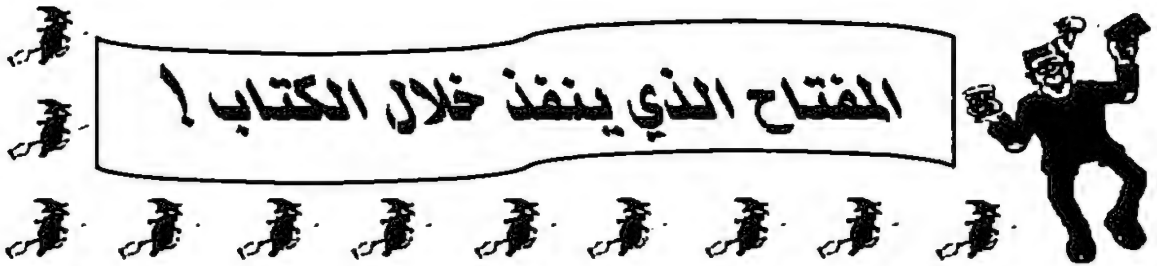 المفتاح الذي ينفذ خلال الكتاب !